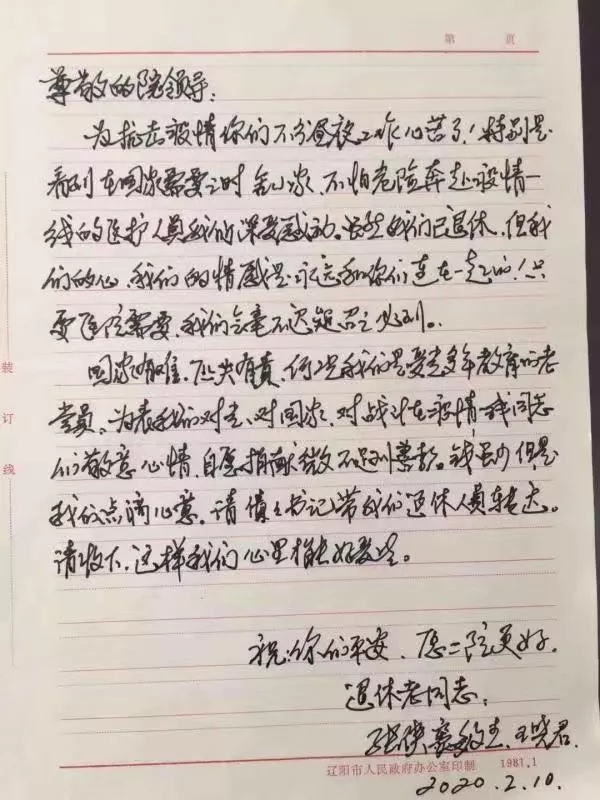 第 页
尊敬的院领导:
为抗击疫情你们不分昼夜工作心苦了!特别是
看到在国家需要之时舍小家、不怕危险奔赴疫情一
线的医护人员我们深受感动。虽然我们已退休,但我
们的心、我们的情感是永远和你们连在一起的!只
要医院需要,我们会毫不迟疑召之必到。
国家有难,匹夫有责,何况我们是受党多年教育的老
党员。为表我们对党、对国家、对战斗在疫情一线同志
们敬意心情,自愿捐献微不足到善款。钱虽少但是
我们点滴心意。请书记带我们退休人员转达。
请收下,这样我们心里才能好受些。
祝:你们平安、愿二院更好。
退休老同志:
王晓君
辽阳市人民政府办公室印制 1981.1
2020.2.10.
装
订
线